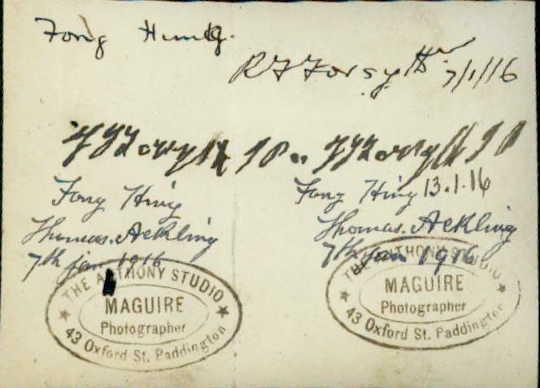 Fong Hing.
R F Forsyth 7/1/16
Fong Hing
Thomas. Ackling
7th Jan 1916
THE ANTHONY STUDIO
MAGUIRE
Photographer
43 Oxford St. Paddington
Fong Hing 13.1.16
Thomas. Ackling
7th Jan 1916
THE ANTHONY STUDIO
MAGUIRE
Photographer
43 Oxford St. Paddington